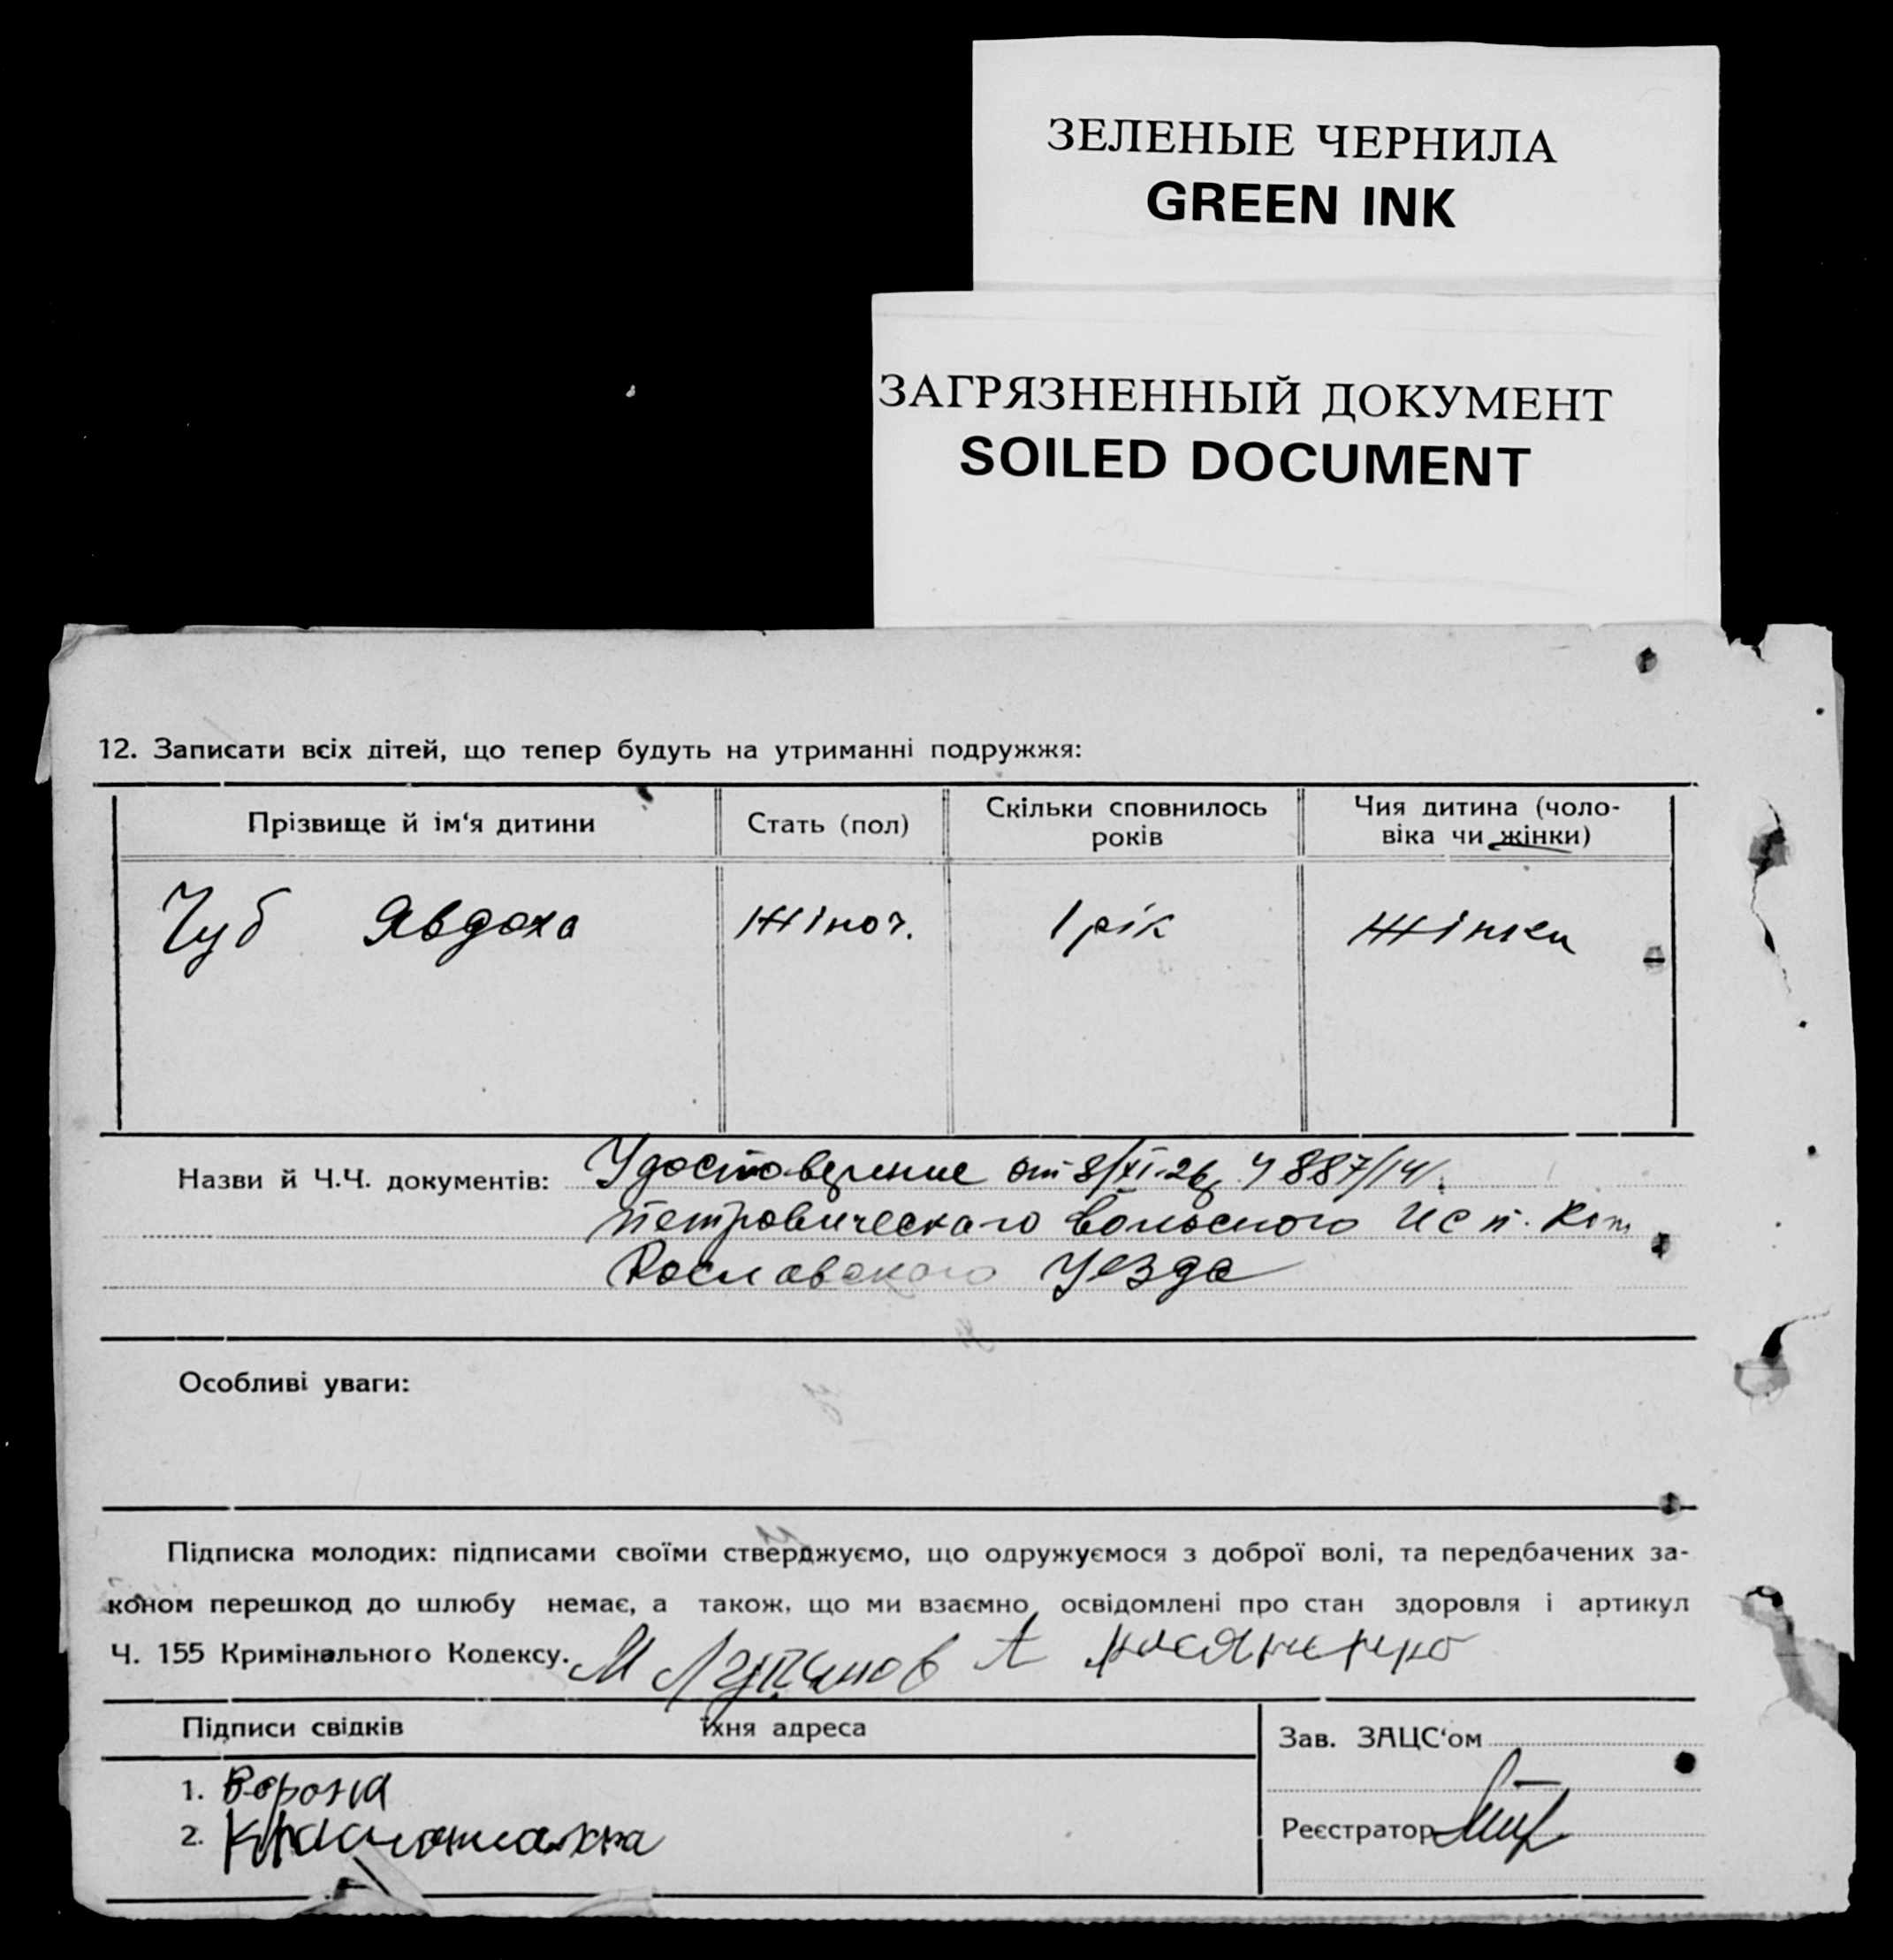 ЗЕЛЕНЫЕ ЧЕРНИЛА
GREEN INK
ЗАГРЯЗНЕННЫЙ ДОКУМЕНТ
SOILED DOCUMENT
12. Записати всіх дітей, що тепер будуть на утриманні подружжя:
Прізвище й ім‘я дитини Стать (пол) Скільки сповнилось років Чия дитина (чоловіка чи жінки)
Чуб Явдоха Жіноч. 1 рік Жінки
Назви й Ч.Ч. документів: Удостоверение от 8/XI-26 Ч 887/141
Петровическаго волосного Исп. Ком
Рославского Уезда
Особливі уваги:
Підписка молодих: підписами своїми стверджуємо, що одружуємося з доброї волі, та передбачених за-
коном перешкод до шлюбу немає, а також, що ми взаємно освідомлені про стан здоровля і артикул
Ч. 155 Кримінального Кодексу. М А
Підписи свідків їхня адреса Зав. ЗАЦС‘ом
1. Ворона
2.
Реєстратор